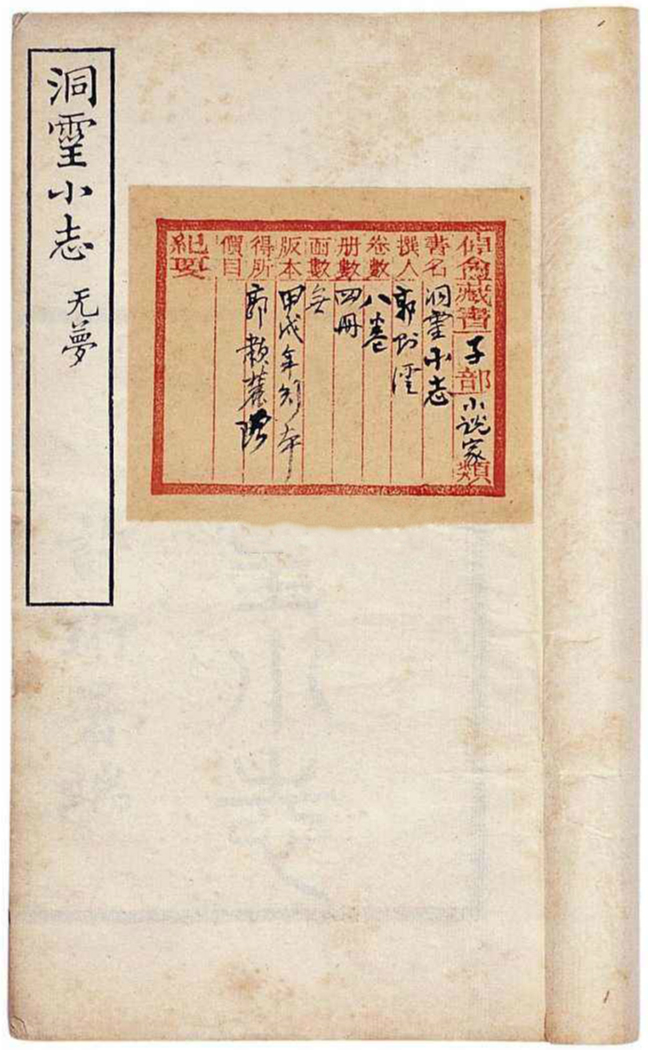 洞霊小志 无夢
盦藏書 子部 小說家類
書名 洞霊小志
撰人 郭則澐
卷數 八卷
册數 四冊
面數
版本 甲戌年刻本
得所 郭嘯麓贈
價目
紀要